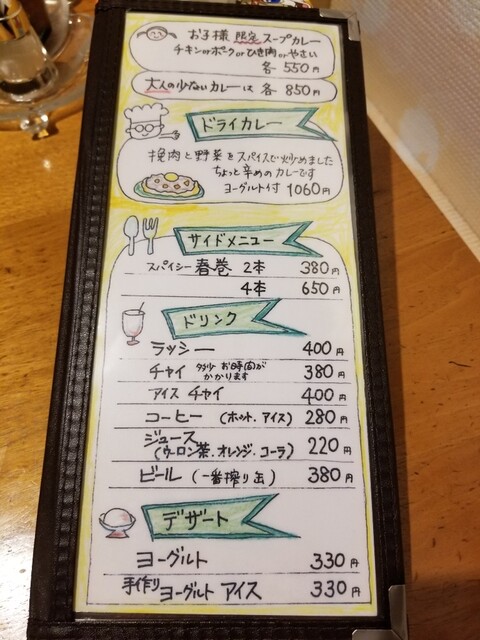 お子様 限定 スープカレー
チキンorポークorひき肉orやさい
各 550円
大人の少ないカレーは 各 850円
ドライカレー
挽肉と野菜をスパイスで炒めました
ちょっと辛めのカレーです
ヨーグルト付 1060円
サイドメニュー
スパイシー 春巻 2本 380円
4本 650円
ドリンク
ラッシー 400円
チャイ 多少 お時間が かかります 380円
アイス チャイ 400円
コーヒー (ホット、アイス) 280円
ジュース
(ウーロン茶、オレンジ、コーラ) 220円
ビール (一番搾り缶) 380円
デザート
ヨーグルト 330円
手作り ヨーグルト アイス 330円